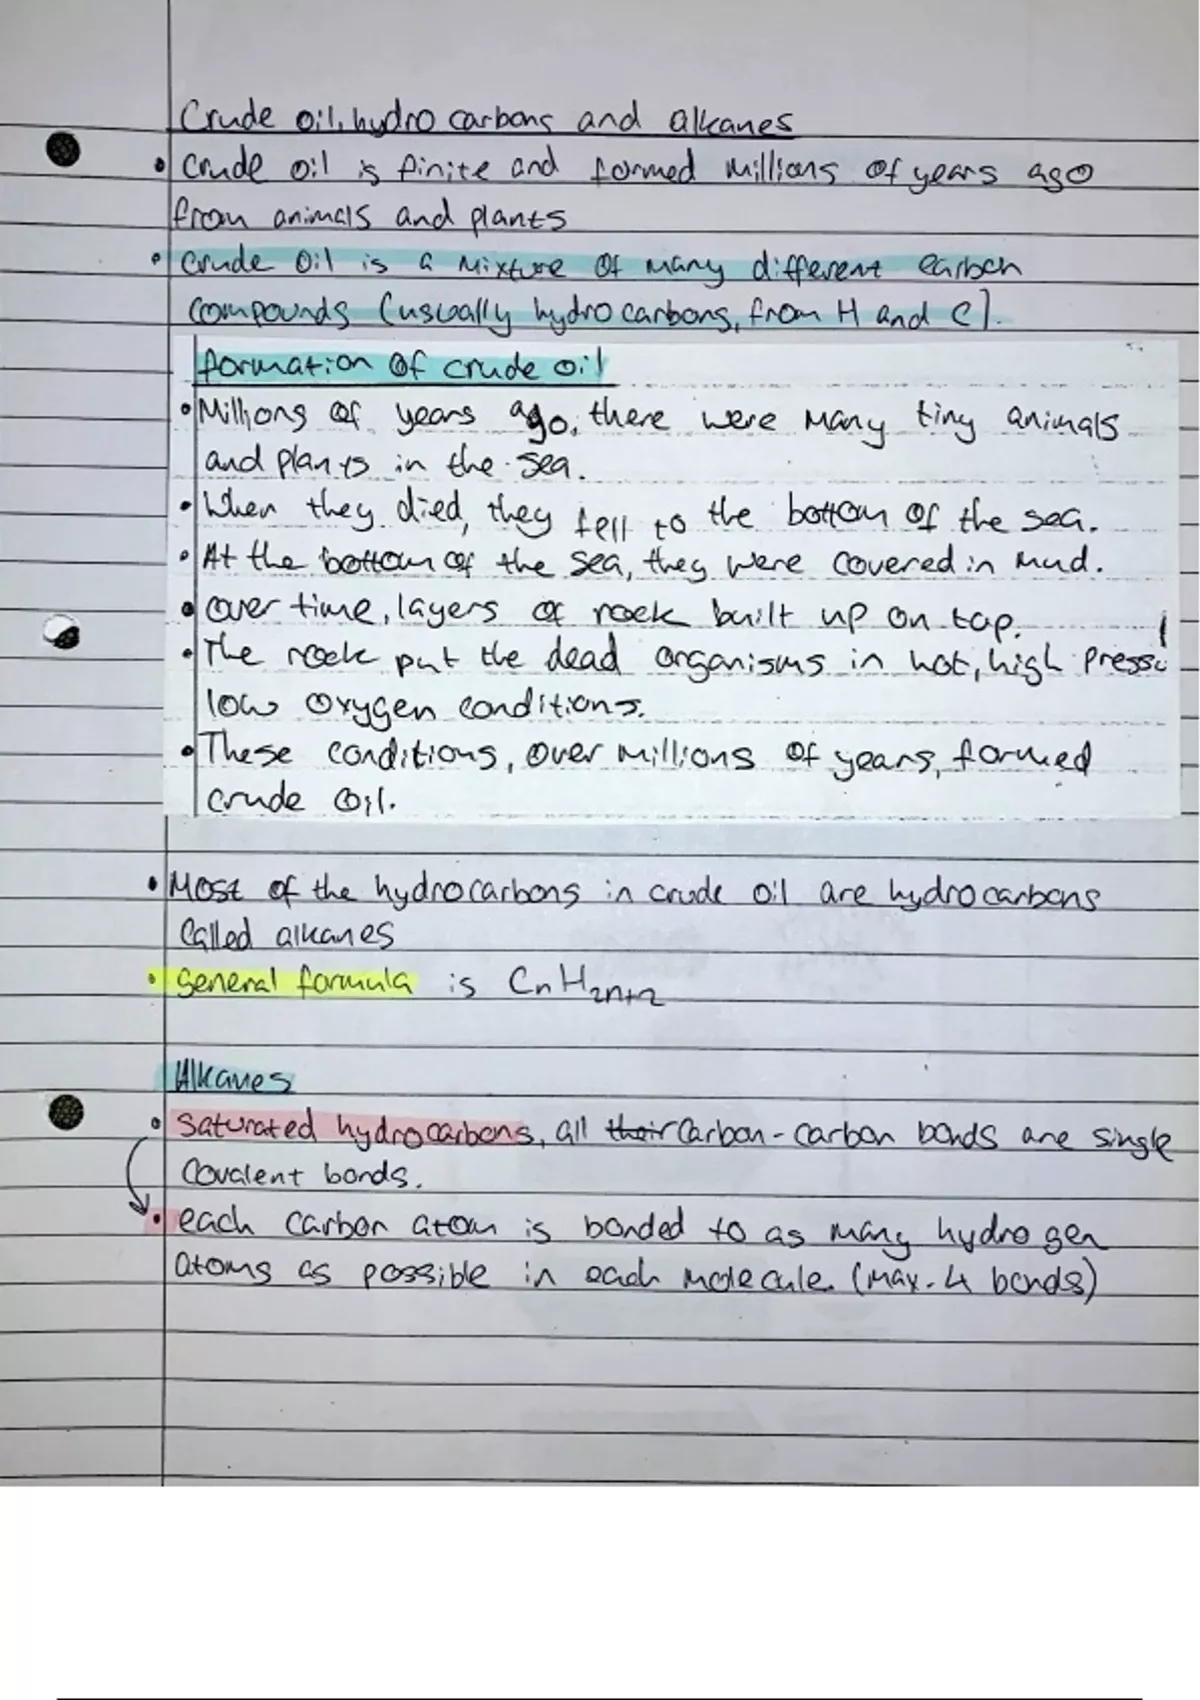 Crude oil, hydrocarbons and alkanes
• Crude oil is finite and formed millions of years ago
from animals and plants
• Crude oil is a mixture of many different carbon
compounds (usually hydrocarbons, from H and C).
formation of crude oil
• Millions of years ago, there were many tiny animals
and plants in the sea.
• When they died, they fell to the bottom of the sea.
• At the bottom of the sea, they were covered in mud.
• Over time, layers of rock built up on top.
• The rock put the dead organisms in hot, high pressu
low oxygen conditions.
• These conditions, over millions of years, formed
crude oil.
• Most of the hydrocarbons in crude oil are hydrocarbons
called alkanes
• general formula is CnH2n+2
Alkanes
• saturated hydrocarbons, all their carbon-carbon bonds are single
covalent bonds.
• each carbon atom is bonded to as many hydrogen
atoms as possible in each molecule. (max. 4 bonds)